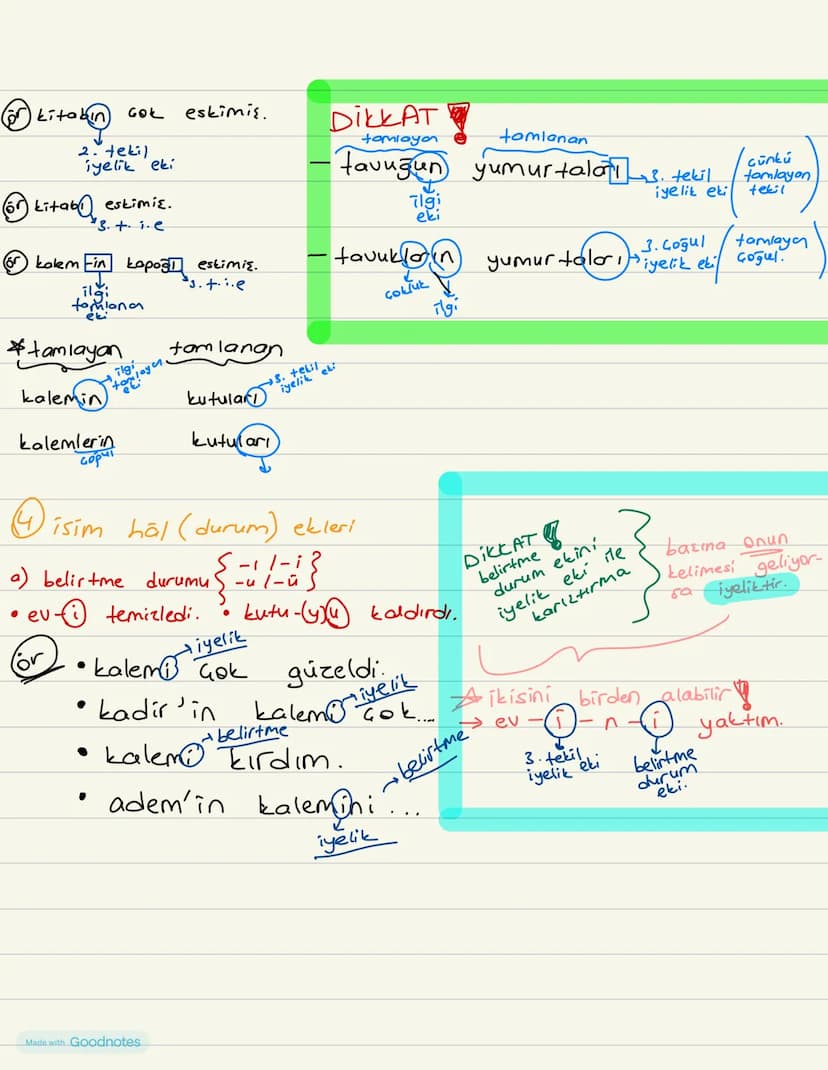 ör kitabın çok eskimiş.
2. tekil
iyelik eki
ör kitabı eskimiş.
3. t. i. e
ör kalem -in kapağı eskimiş.
3. t. i. e
ilgi
tamlanan
eki
* tamlayan tamlanan
kalemin
ilgi
tamlayan
kutuları
3. tekil
iyelik eki
kalemlerin kutuları
çoğul
DİKKAT !
tamlayan tamlanan
— tavuğun yumurtaları
ilgi
eki
3. tekil
iyelik eki
çünkü
tamlayan
tekil
— tavukların yumurtaları
çokluk
ilgi
3. çoğul
iyelik eki
tamlayan
çoğul.
4 isim hâl (durum) ekleri
a) belirtme durumu { -ı / -i
-u / -ü }
• ev-i temizledi. • kutu-(y)u kaldırdı.
ör
• kalemi çok güzeldi.
iyelik
• kadir'in kalemi çok....
iyelik
• kalemi kırdım.
belirtme
• adem'in kalemini ...
belirtme
iyelik
DİKKAT !
belirtme
durum ekini
iyelik eki ile
karıştırma
başına onun
kelimesi geliyor-
sa iyeliktir.
ikisini birden alabilir !
→ ev - i - n - i yaktım.
3. tekil
iyelik eki
belirtme
durum
eki.
Made with Goodnotes